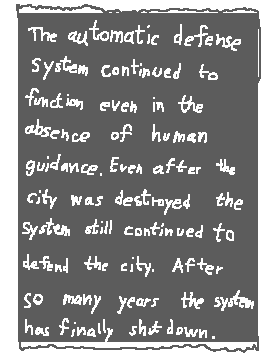 The automatic defense
system continued to
function even in the
absence of human
guidance. Even after the
city was destroyed the
system still continued to
defend the city. After
so many years the system
has finally shut down.